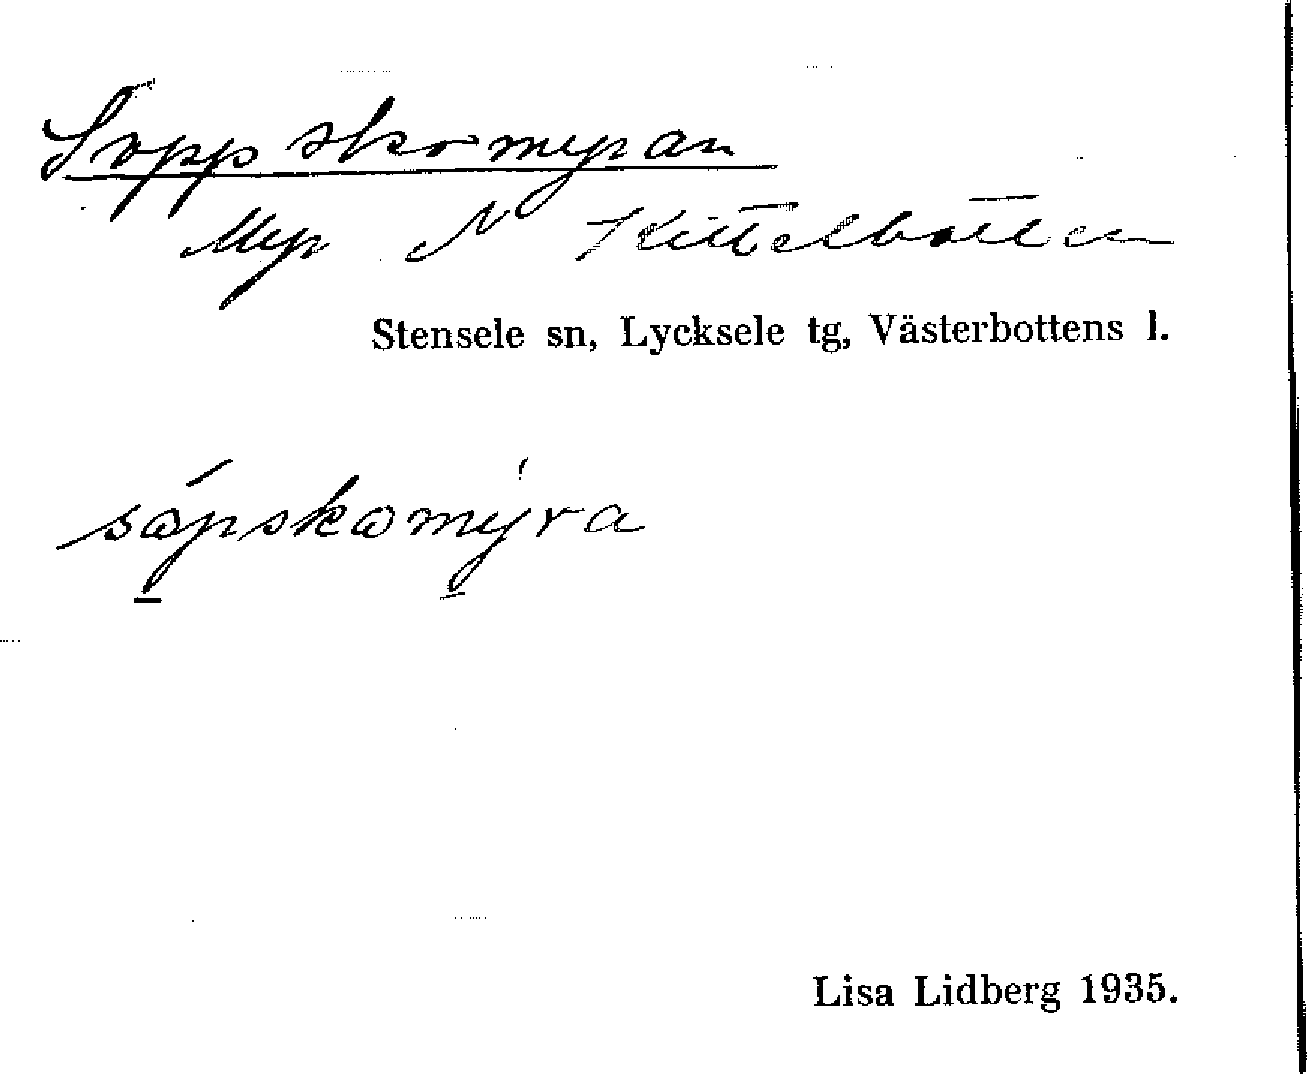 Soppskomyran
Myr N Kittelbotten
Stensele sn, Lycksele tg, Västerbottens l.
sópskomýra
Lisa Lidberg 1935.